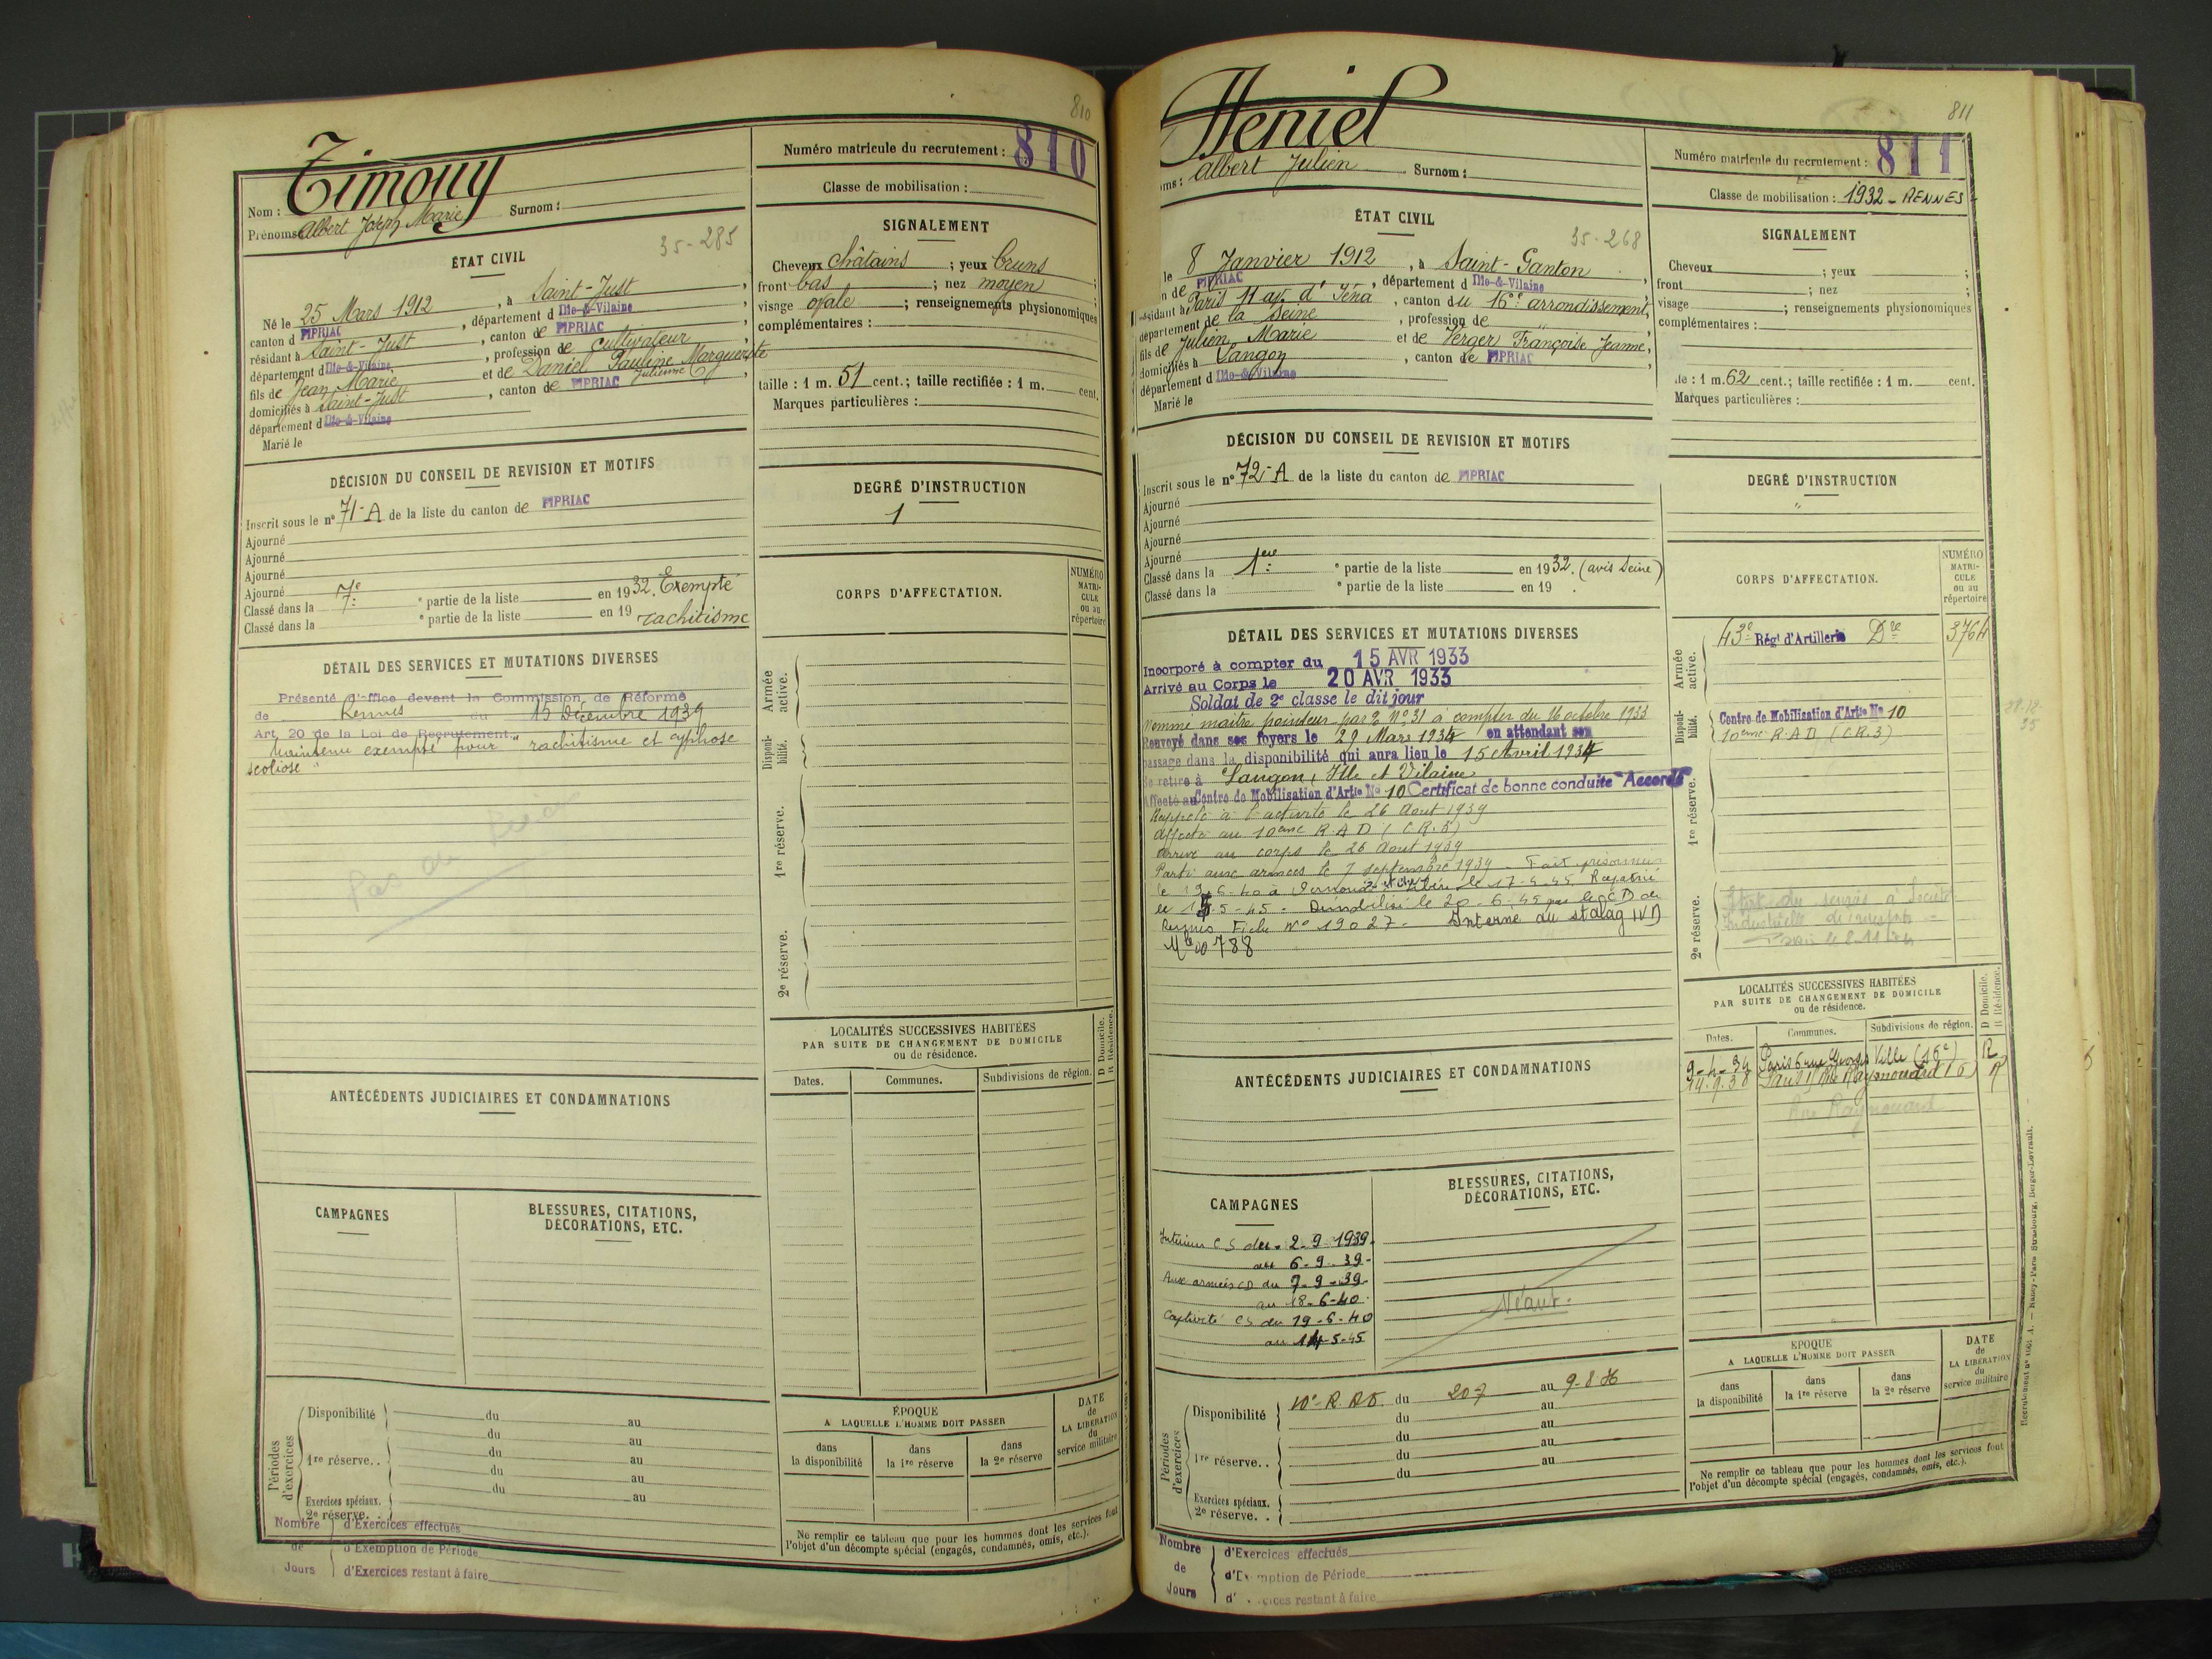 810
Timouy
Nom :
Prénoms : Albert Joseph Marie Surnom :
Numéro matricule du recrutement : 810
Classe de mobilisation :
ÉTAT CIVIL
35-285
Né le 25 Mars 1912, à Saint-Just,
canton d PIPRIAC, département d Ille-&-Vilaine
résidant à Saint-Just, canton de PIPRIAC
département d Ille-&-Vilaine, profession de cultivateur
fils de Jean Marie et de Daniel Pauline Marguerite Julienne
domiciliés à Saint-Just, canton de PIPRIAC,
département d Ille-&-Vilaine
Marié le
SIGNALEMENT
Cheveux châtains ; yeux bruns ;
front bas ; nez moyen ;
visage ovale ; renseignements physionomiques
complémentaires :
taille : 1 m. 51 cent.; taille rectifiée : 1 m. cent.
Marques particulières :
DÉCISION DU CONSEIL DE REVISION ET MOTIFS
Inscrit sous le n° 71-A de la liste du canton de PIPRIAC
Ajourné
Ajourné
Ajourné
Ajourné
Classé dans la 7e ° partie de la liste en 1932. Exempté
Classé dans la ° partie de la liste en 19 rachitisme
DEGRÉ D'INSTRUCTION
1
DÉTAIL DES SERVICES ET MUTATIONS DIVERSES
Présenté d'office devant la Commission de Réforme
de Rennes du 15 Décembre 1939
Art. 20 de la Loi de Recrutement.
Maintenu exempté pour " rachitisme et cyphose
scoliose "
Pas de
CORPS D'AFFECTATION.
NUMÉRO MATRI-CULE ou au répertoire
Armée active.
Disponi-bilité.
1re réserve.
2e réserve.
LOCALITÉS SUCCESSIVES HABITÉES
PAR SUITE DE CHANGEMENT DE DOMICILE
ou de résidence.
D Domicile.
R Résidence.
Dates. Communes. Subdivisions de région.
ANTÉCÉDENTS JUDICIAIRES ET CONDAMNATIONS
CAMPAGNES
BLESSURES, CITATIONS,
DÉCORATIONS, ETC.
Périodes d'exercices
Disponibilité du au
du au
1re réserve. . du au
du au
du au
Exercices spéciaux.
2e réserve. .
ÉPOQUE
A LAQUELLE L'HOMME DOIT PASSER
dans la disponibilité
dans la 1re réserve
dans la 2e réserve
DATE de LA LIBÉRATION du service militaire
Ne remplir ce tableau que pour les hommes dont les services font
l'objet d'un décompte spécial (engagés, condamnés, omis, etc.).
Nombre de Jours
d'Exercices effectués
d'Exemption de Période
d'Exercices restant à faire
811
Heniel
ms : Albert Julien Surnom :
Numéro matricule du recrutement : 811
Classe de mobilisation : 1932 - RENNES -
ÉTAT CIVIL
35-268
le 8 Janvier 1912, à Saint-Ganton,
n de PIPRIAC, département d Ille-&-Vilaine
sidant à Paris 11 av. d'Iéna, canton du 16e arrondissement,
département de la Seine, profession de "
fils de Julien Marie et de Verger Françoise Jeanne,
domiciliés à Langon, canton de PIPRIAC,
département d Ille-&-Vilaine
Marié le
SIGNALEMENT
Cheveux ; yeux ;
front ; nez ;
visage ; renseignements physionomiques
complémentaires :
lle : 1 m. 62 cent.; taille rectifiée : 1 m. cent.
Marques particulières :
DÉCISION DU CONSEIL DE REVISION ET MOTIFS
Inscrit sous le n° 72-A de la liste du canton de PIPRIAC
Ajourné
Ajourné
Ajourné
Ajourné
Classé dans la 1ere ° partie de la liste en 1932. (avis Seine)
Classé dans la ° partie de la liste en 19 .
DEGRÉ D'INSTRUCTION
"
DÉTAIL DES SERVICES ET MUTATIONS DIVERSES
Incorporé à compter du 15 AVR 1933
Arrivé au Corps le 20 AVR 1933
Soldat de 2e classe le dit jour
Nommé maître pointeur par O N° 31 à compter du 16 octobre 1933
Renvoyé dans ses foyers le 29 Mars 1934 en attendant son
passage dans la disponibilité qui aura lieu le 15 Avril 1934
Se retire à Langon, Ille et Vilaine
Affecté au Centre de Mobilisation d'Artie No 10 Certificat de bonne conduite "Accordé"
Rappelé à l'activité le 26 Aout 1939
Affecté au 10eme R.A.D (C.R.3)
Arrivé au corps le 26 Aout 1939
Parti aux armées le 7 septembre 1939 - Fait prisonnier
le 19.6.40 à Libéré le 17-4-45 Rapatrié
le 15.5-45 - Démobilisé le 20-6-45 par le CD de
Rennes Fiche N° 19027. Interné au stalag IVD
Mle 788
CORPS D'AFFECTATION.
NUMÉRO MATRI-CULE ou au répertoire
Armée active. 43e Régt d'Artillerie Dre 3764
Disponi-bilité. Centre de Mobilisation d'Artie No 10
10eme R.A.D (C.R.3)
1re réserve.
2e réserve.
LOCALITÉS SUCCESSIVES HABITÉES
PAR SUITE DE CHANGEMENT DE DOMICILE
ou de résidence.
D Domicile.
R Résidence.
Dates. Communes. Subdivisions de région.
9-4-34 Paris 6 rue Ville (16e) R
14.9.38 Paris 11 Rue Raynouard 16) R
Rue Raynouard
ANTÉCÉDENTS JUDICIAIRES ET CONDAMNATIONS
CAMPAGNES
Intérieur CS du 2-9-1939
au 6-9-39-
Aux armées CD du 7-9-39-
au 18-6-40
Captivité CS du 19-6-40
au 14-5-45
BLESSURES, CITATIONS,
DÉCORATIONS, ETC.
Néant.
Périodes d'exercices
Disponibilité 10e R.A.D. du 20-7 au 9-8 36
du au
du au
1re réserve. . du au
du au
Exercices spéciaux.
2e réserve. .
ÉPOQUE
A LAQUELLE L'HOMME DOIT PASSER
dans la disponibilité
dans la 1re réserve
dans la 2e réserve
DATE de LA LIBÉRATION du service militaire
Ne remplir ce tableau que pour les hommes dont les services font
l'objet d'un décompte spécial (engagés, condamnés, omis, etc.).
Nombre de Jours
d'Exercices effectués
d'Exemption de Période
d'Exercices restant à faire